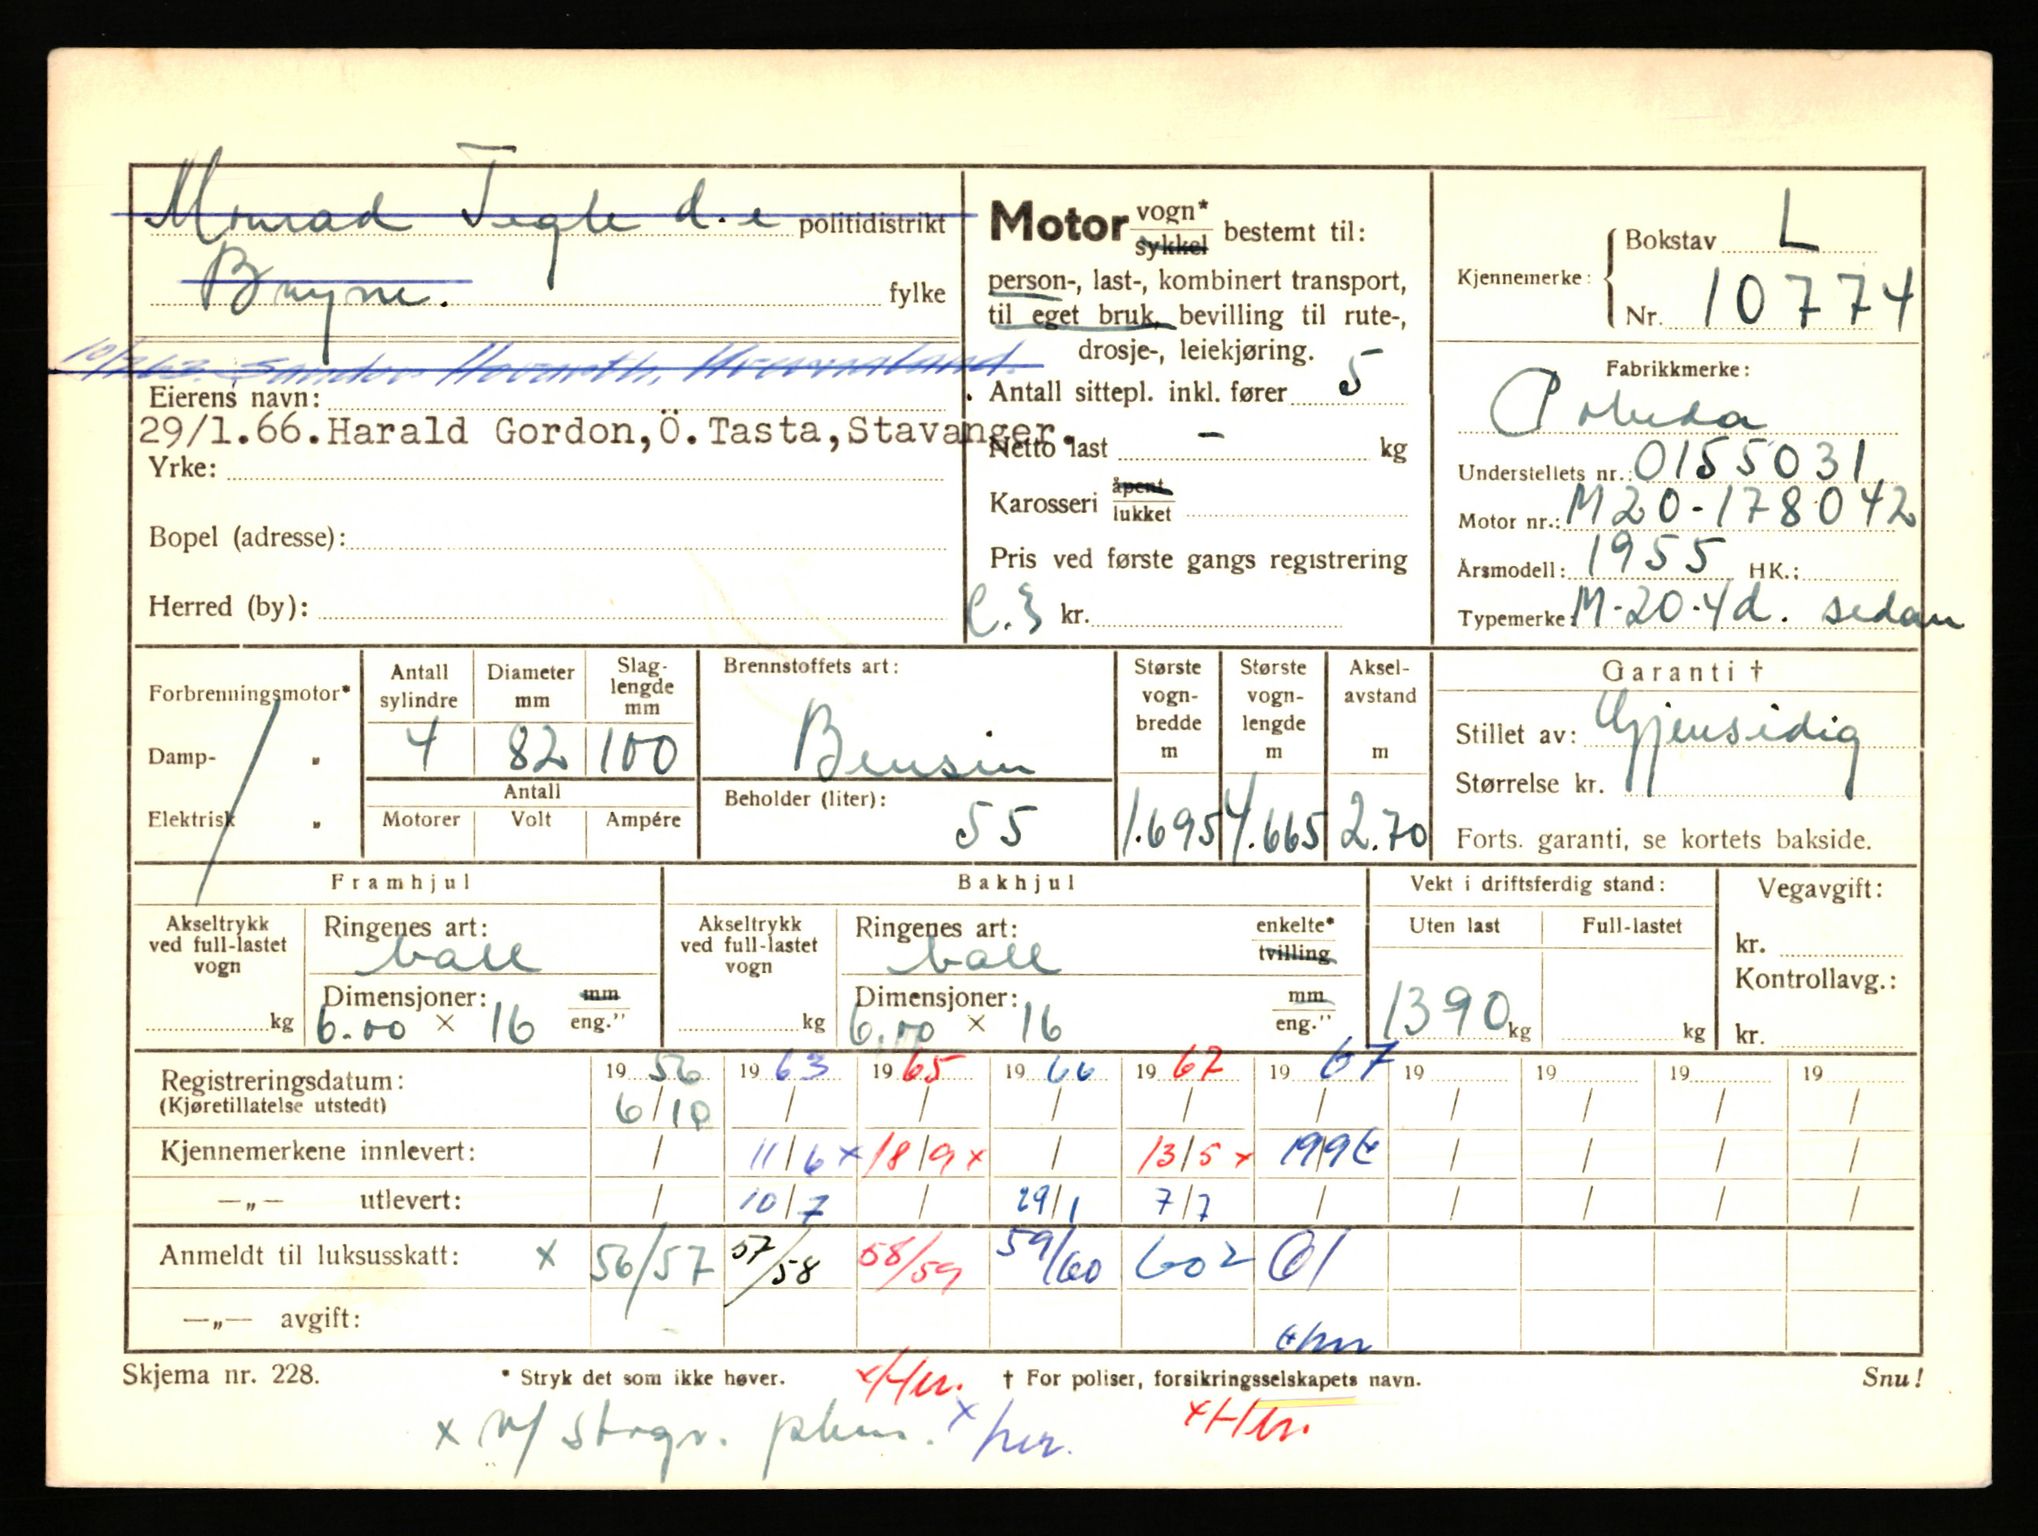 Monrad Tegle d.e politidistrikt
Bryne. fylke
Eierens navn:
29/1.66.Harald Gordon,Ö.Tasta,Stavanger.
Yrke:
Bopel (adresse):
Herred (by):
Motor vogn* sykkel bestemt til:
person-, last-, kombinert transport,
til eget bruk, bevilling til rute-,
drosje-, leiekjøring.
Antall sittepl. inkl. fører 5
Netto last - kg
Karosseri åpent lukket
Pris ved første gangs registrering
kr.
Kjennemerke: Bokstav L
Nr. 10774
Fabrikkmerke:
Pobeda
Understellets nr.: 0155031
Motor nr.: M20-178042
Årsmodell: 1955 HK.:
Typemerke: M-20-4d. sedan
Forbrenningsmotor*
Damp- "
Elektrisk "
Antall sylindre 4
Diameter mm 82
Slaglengde mm 100
Antall
Motorer Volt Ampére
Brennstoffets art:
Bensin
Beholder (liter):
55
Største vognbredde m 1.695
Største vognlengde m 4.665
Akselavstand m 2.70
Garanti †
Stillet av: Gjensidig
Størrelse kr.
Forts. garanti, se kortets bakside.
Framhjul
Akseltrykk ved full-lastet vogn
kg
Ringenes art:
ball
Dimensjoner: mm eng."
6.00 × 16
Bakhjul
Akseltrykk ved full-lastet vogn
kg
Ringenes art: enkelte* tvilling
ball
Dimensjoner: mm eng."
6.00 × 16
Vekt i driftsferdig stand:
Uten last Full-lastet
1390 kg kg
Vegavgift:
kr.
Kontrollavg.:
kr.
Registreringsdatum: 1956 1963 1965 1966 1967 1967 19 19 19 19
(Kjøretillatelse utstedt) 6/10 / / / / / / / / /
Kjennemerkene innlevert: / 11/6 x 18/9 x / 13/5 x 19/9 / / / /
—„— utlevert: / 10/7 / 29/1 7/7 / / / / /
Anmeldt til luksusskatt: x 56/57 57/58 58/59 59/60 602 61
—„— avgift:
Skjema nr. 228. * Stryk det som ikke høver. x Her. † For poliser, forsikringsselskapets navn. Snu!
x Her.
x her.